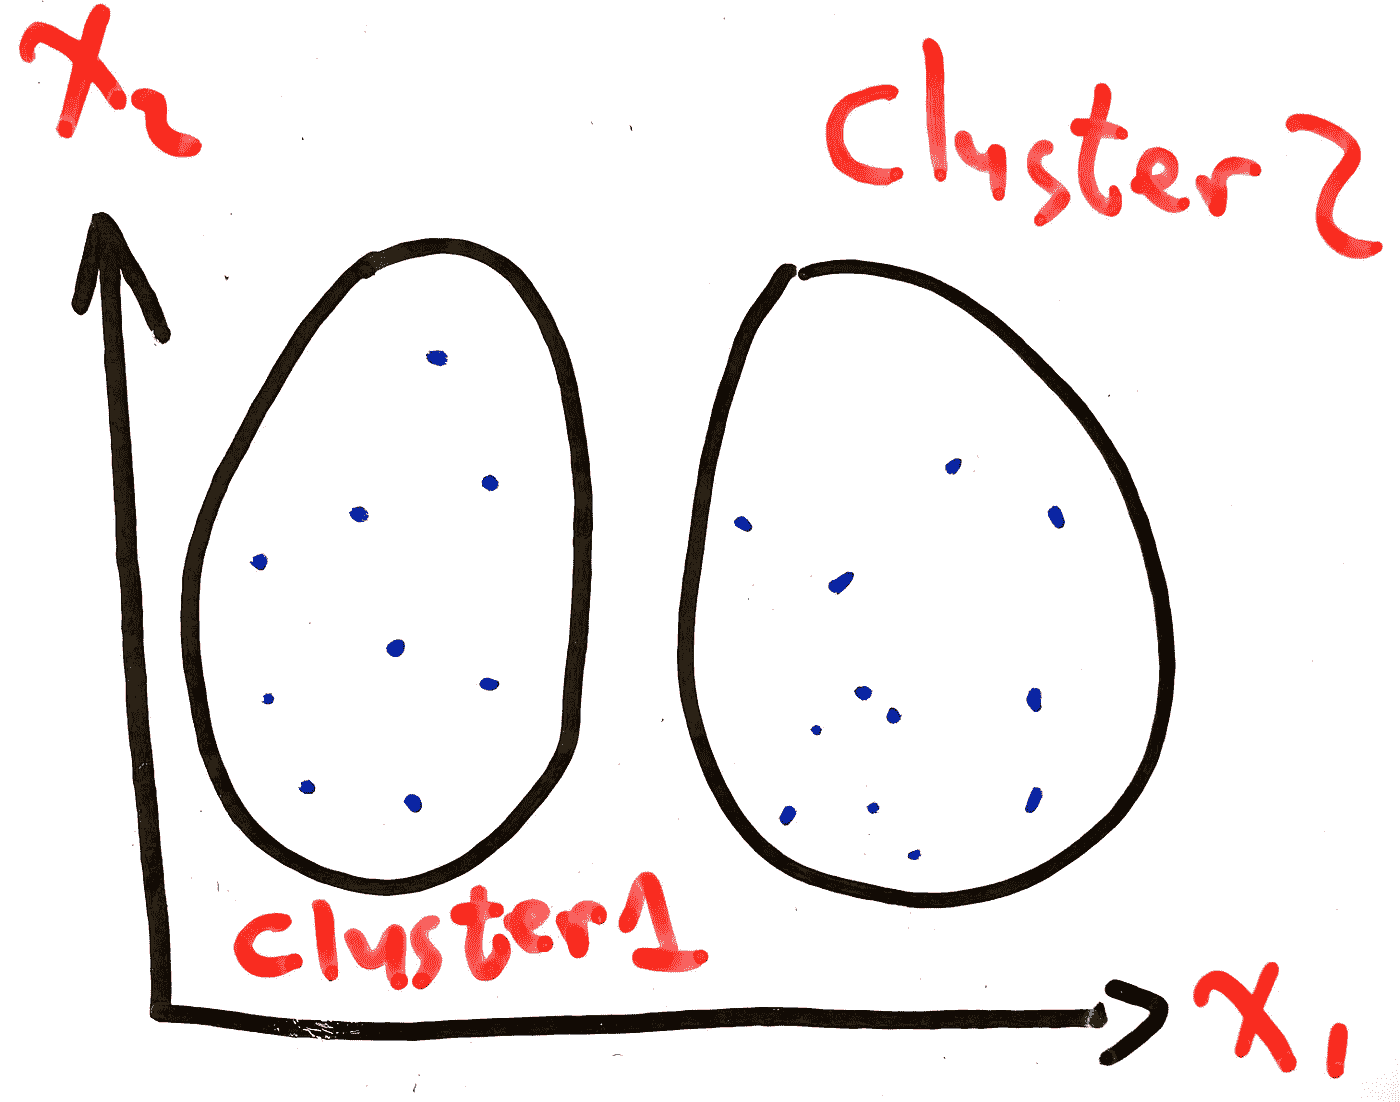 X2
Cluster 2
Cluster 1
X1